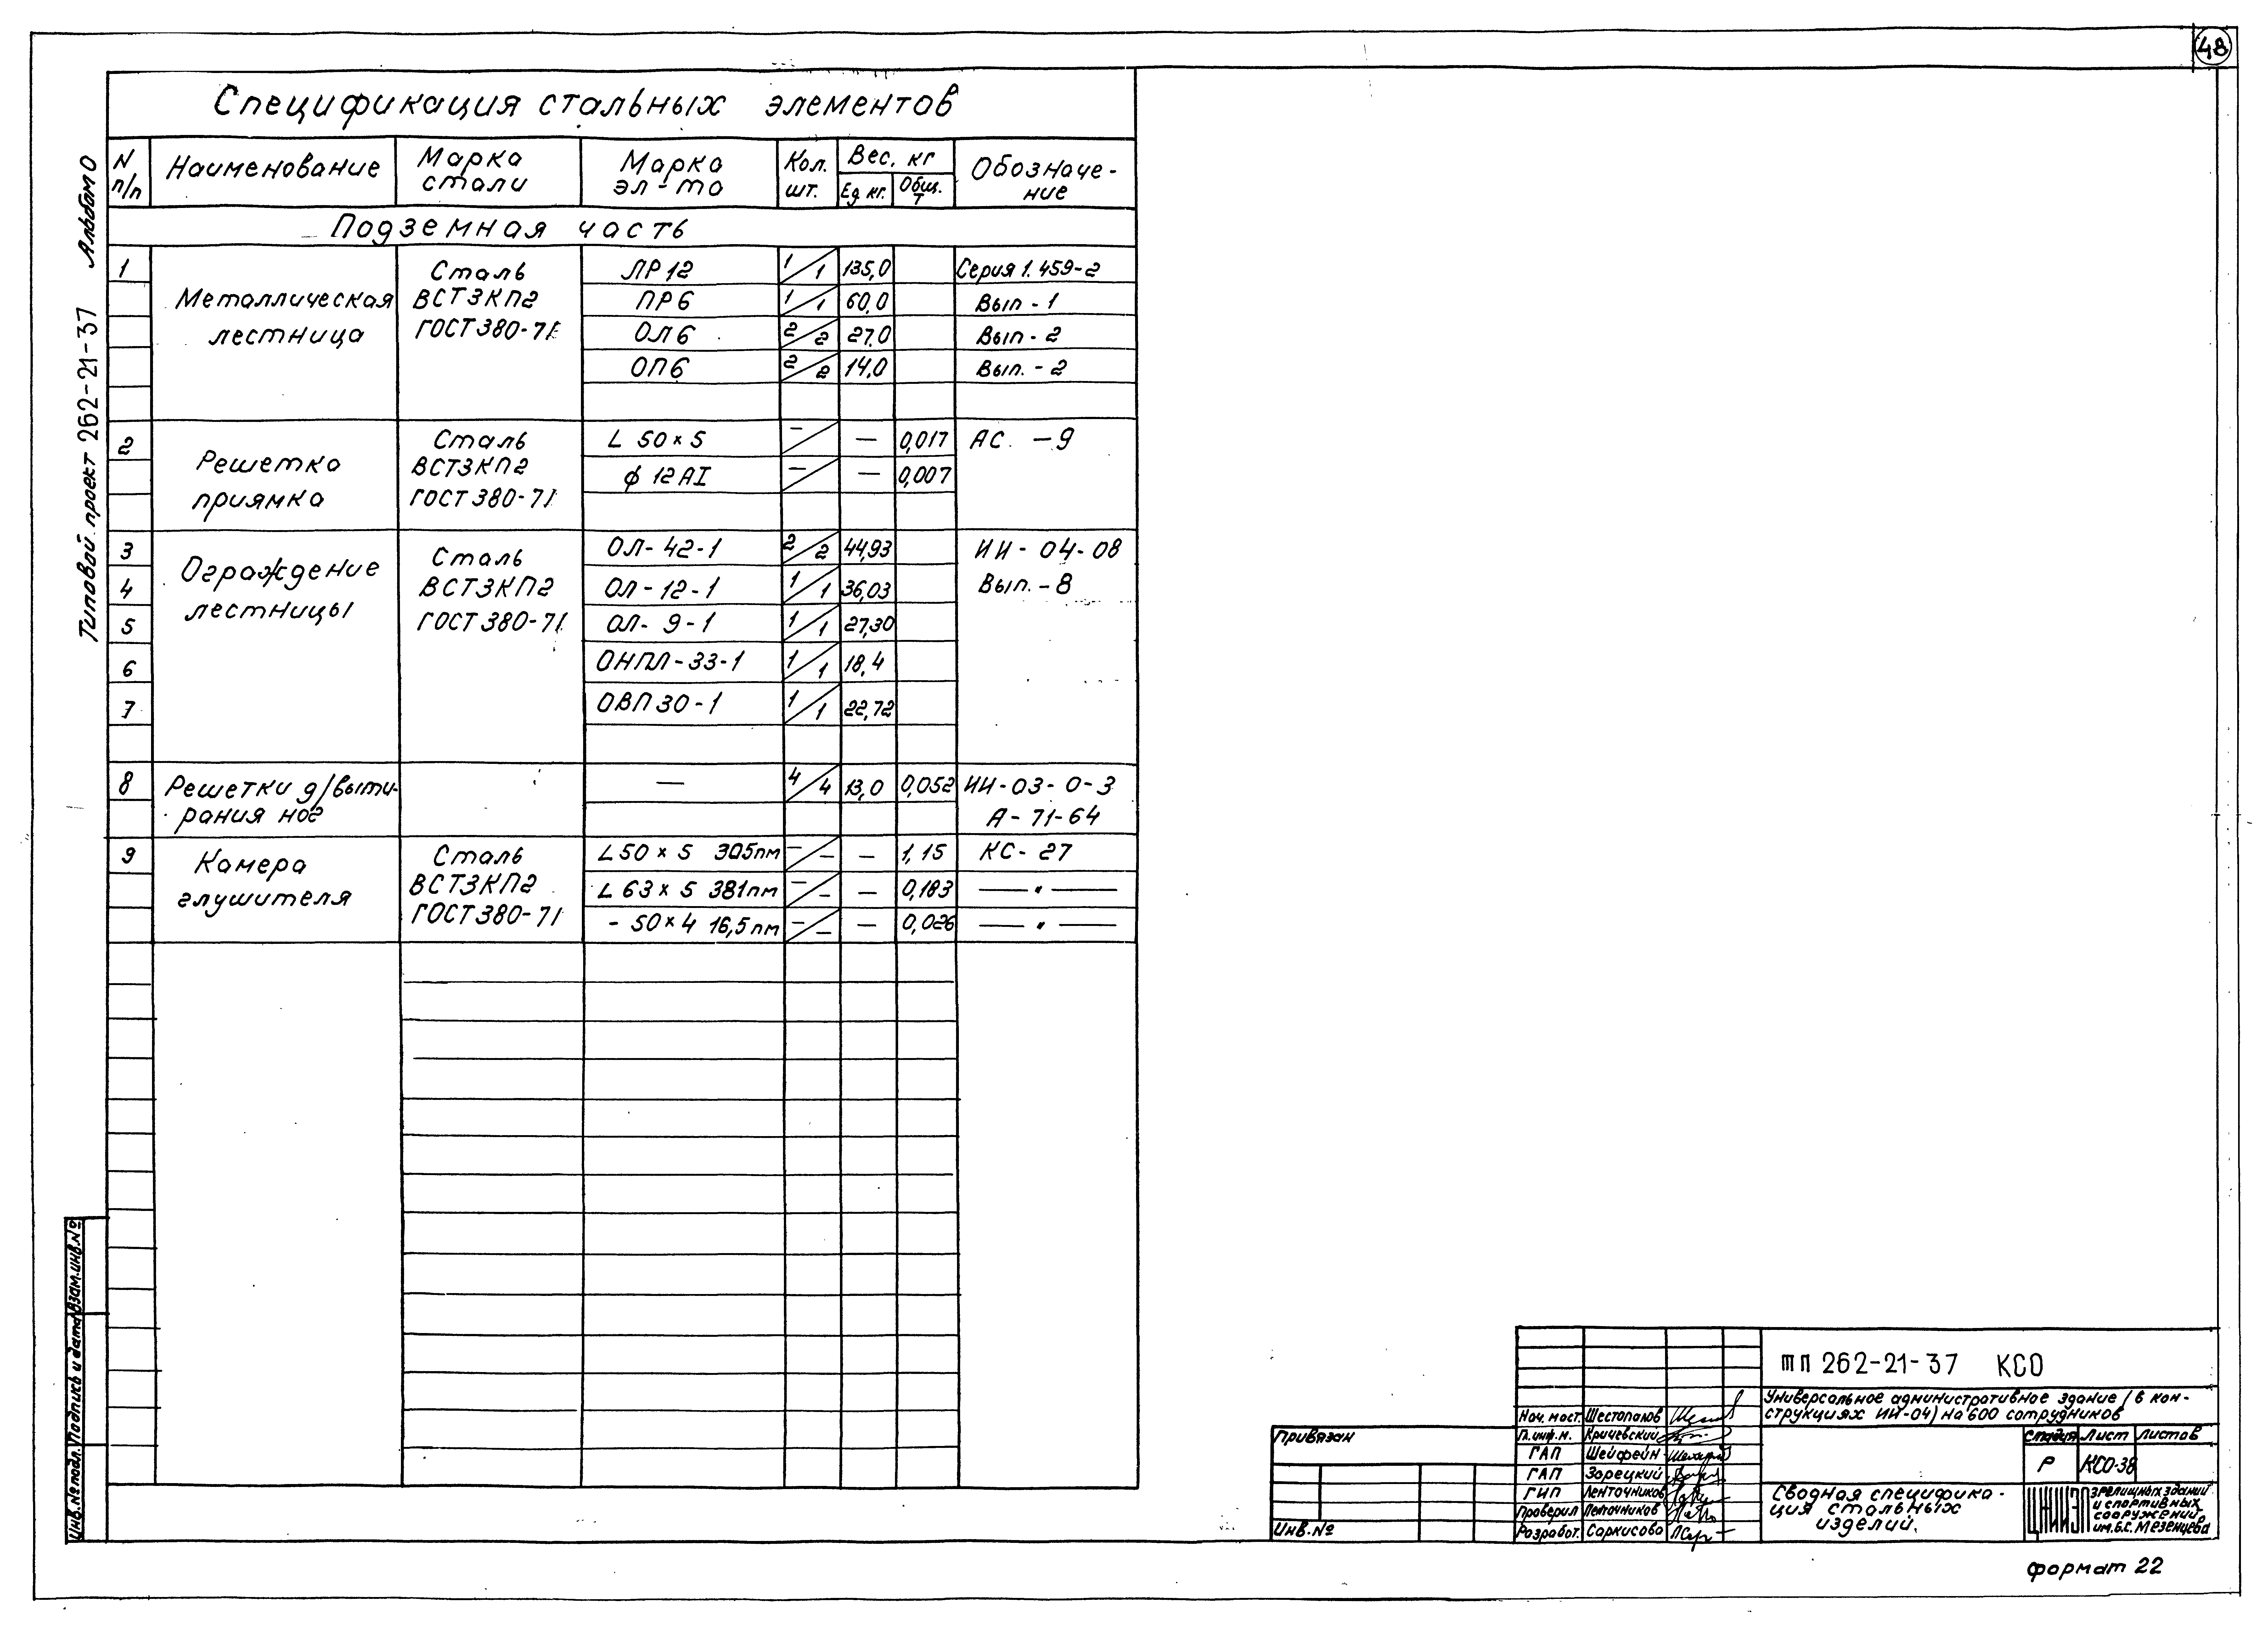 48
Типовой проект 262-21-37 Альбом 0
Спецификация стальных элементов
N п/п
Наименование
Марка стали
Марка эл-та
Кол. шт.
Вес, кг
Ед кг.
Общ. т
Обозначе-
ние
Подземная часть
1 Металлическая лестница
Сталь ВСТ3КП2 ГОСТ 380-71
ЛР12 1/1 135,0 Серия 1.459-2
ПР6 1/1 60,0 Вып-1
ОЛ6 2/2 27,0 Вып-2
ОП6 2/2 14,0 Вып.-2
2 Решетка приямка
Сталь ВСТ3КП2 ГОСТ 380-71
L 50×5 –/ — 0,017 АС.-9
ф 12АI –/ — 0,007
Ограждение лестницы
Сталь ВСТ3КП2 ГОСТ 380-71
3 ОЛ-42-1 2/2 44,93 ИИ-04-08
4 ОЛ-12-1 1/1 36,03 Вып.-8
5 ОЛ-9-1 1/1 27,30
6 ОНПЛ-33-1 1/1 18,4
7 ОВП30-1 1/1 22,72
8 Решетки д/выти-
рания ног
— 4/4 13,0 0,052 ИИ-03-0-3
А-71-64
9 Камера глушителя
Сталь ВСТ3КП2 ГОСТ 380-71
L50×5 305пм –/– — 1,15 КС-27
L 63×5 381пм –/– — 0,183 —"—
- 50×4 16,5пм –/– — 0,026 —"—
Инв.№подл.
Подпись и дата
Взам.инв.№
Привязан
Инв.№
тп 262-21-37 КСО
Универсальное административное здание /в кон-
струкциях ИИ-04) на 600 сотрудников
Нач. маст. Шестопалов
Гл.инж.м. Кричевский
ГАП Шейфейн
ГАП Зарецкий
ГИП Ленточников
Проверил Ленточников
Разработ. Саркисова
Стадия Лист Листов
Р КСО-38
Сводная специфика-
ция стальных
изделий.
ЦНИИЭП
зрелищных зданий
и спортивных
сооружений
им.Б.С.Мезенцева
формат 22